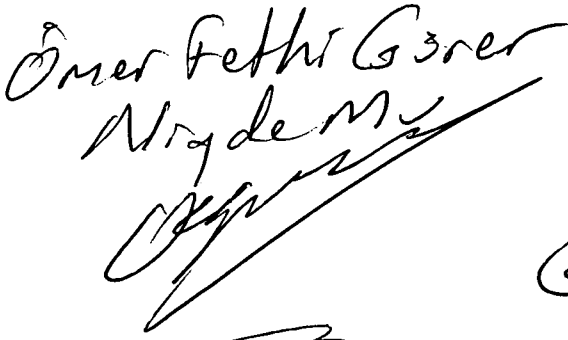 Ömer Fethi Gürer
Niğde Mv